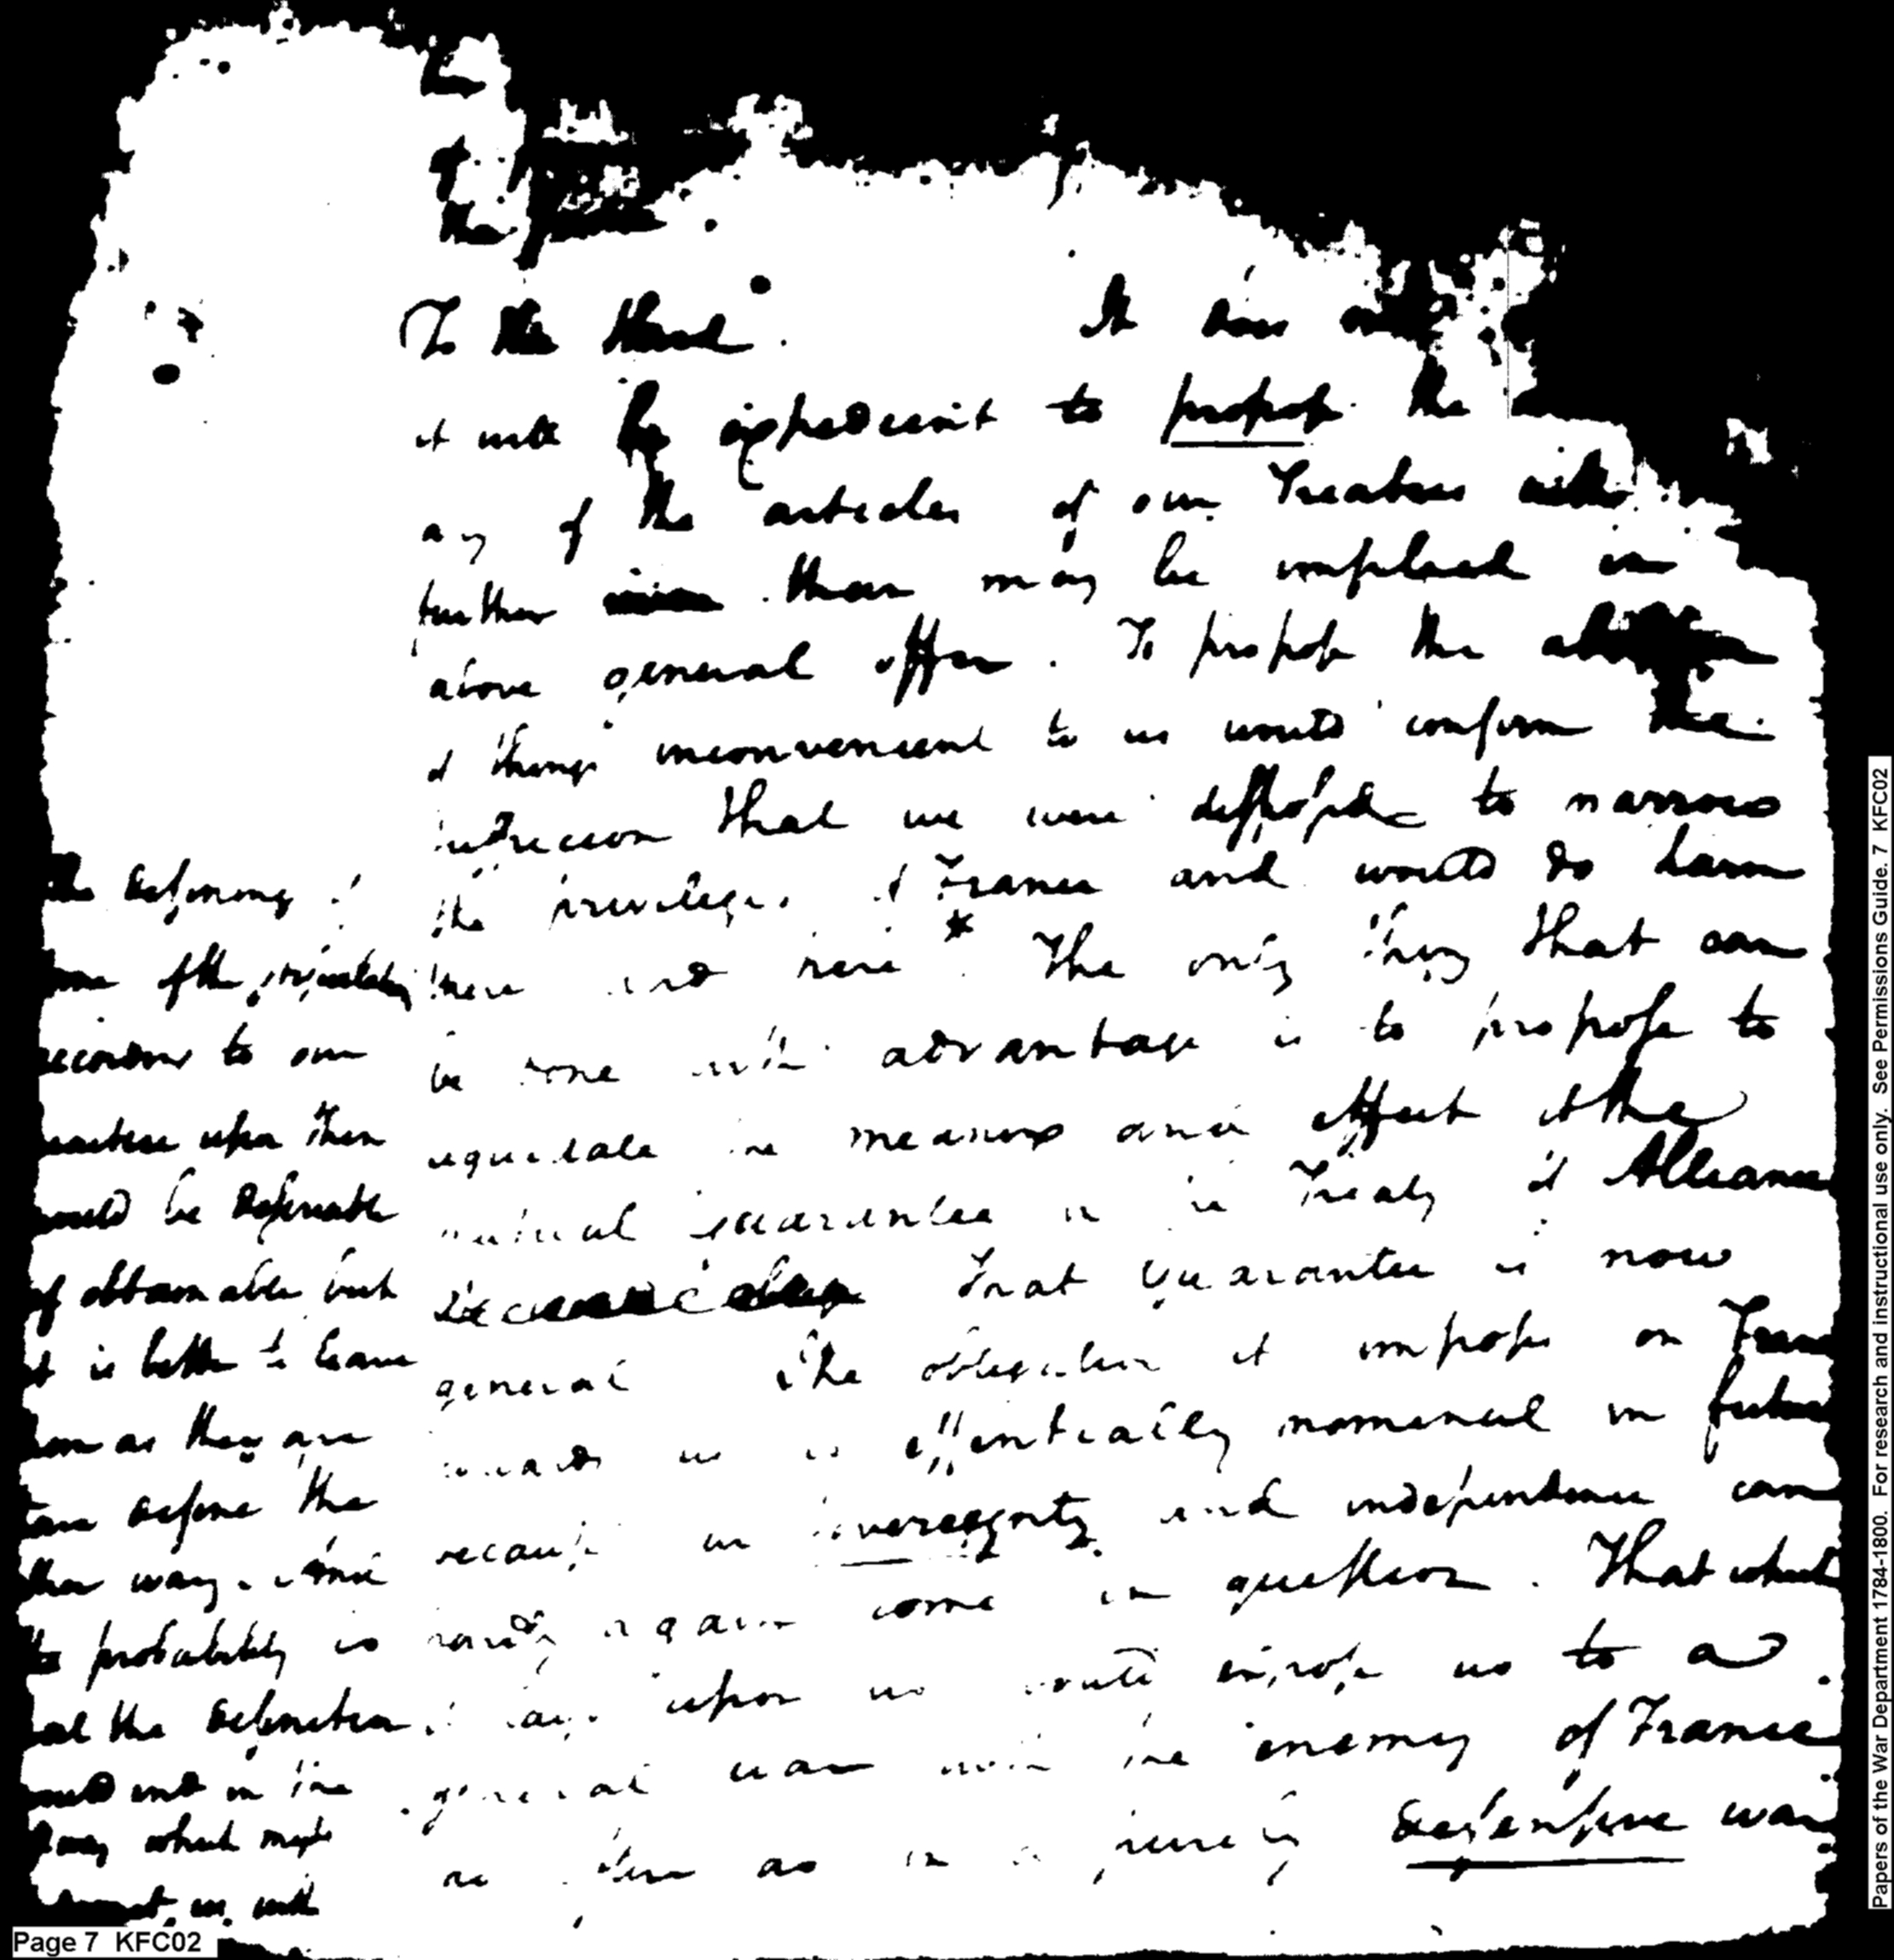 To the third. It does
it will be expedient to propose the
any of the articles of our Treaties with
further than may be implied in
above general offer. To propose the
of things inconvenient to us would confirm the
suspicion that we were disposed to narrow
the privileges of France and would do harm
there and here * The only thing that can
be done with advantage is to propose to
liquidate the meaning and effect of the
mutual guarantee in the Treaty of Alliance
That guarantee is now
general The obligation it imposes on
towards us is essentially nominal in future
because our sovereignty and independence can
hardly again come in question. That which
it lays upon us would expose us to a
general war with the enemy of France
as often as in a purely defensive war
the defining of
some of the stipulations
according to our
construction upon them
would be desirable
if obtainable but
it is better to leave
them as they are
than define the
other way. And
the probability is
that the definition
would end in the
way which might
not suit
Page 7 KFC02
Papers of the War Department 1784-1800. For research and instructional use only. See Permissions Guide. 7 KFC02